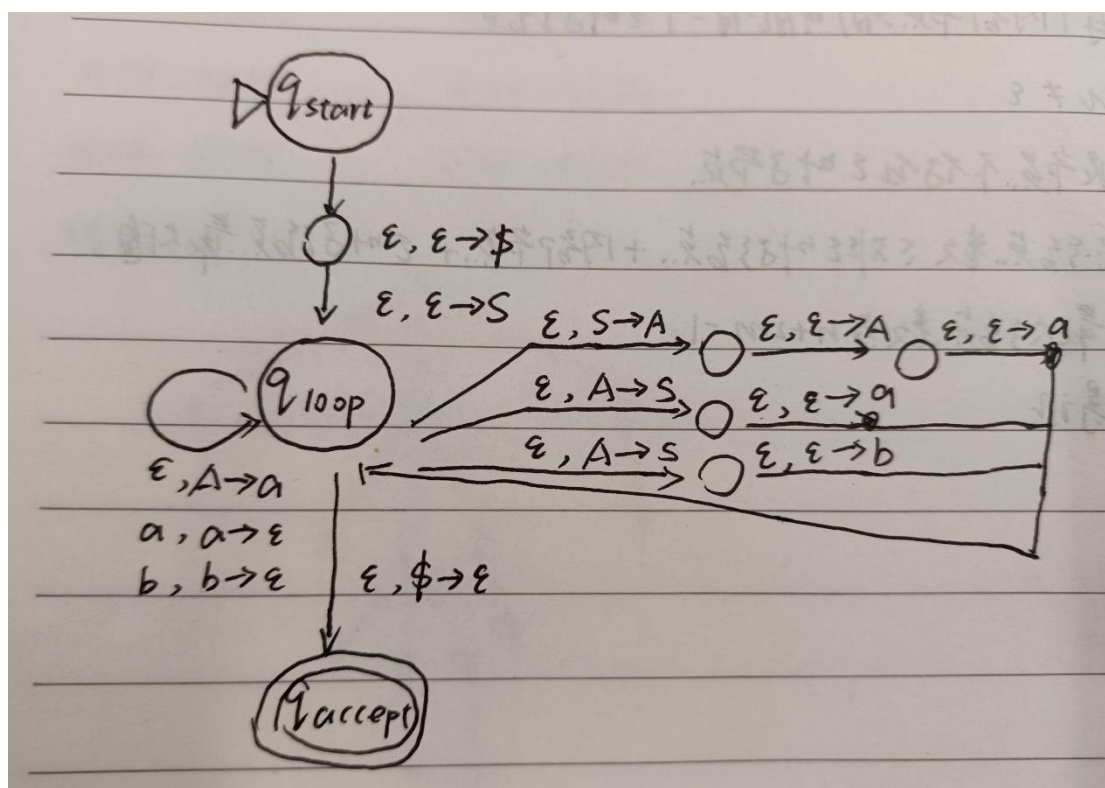 q start
ε, ε→$
ε, ε→S
ε, S→A
ε, ε→A
ε, ε→a
q loop
ε, A→S
ε, ε→a
ε, A→S
ε, ε→b
ε, A→a
a, a→ε
b, b→ε
ε, $→ε
q accept